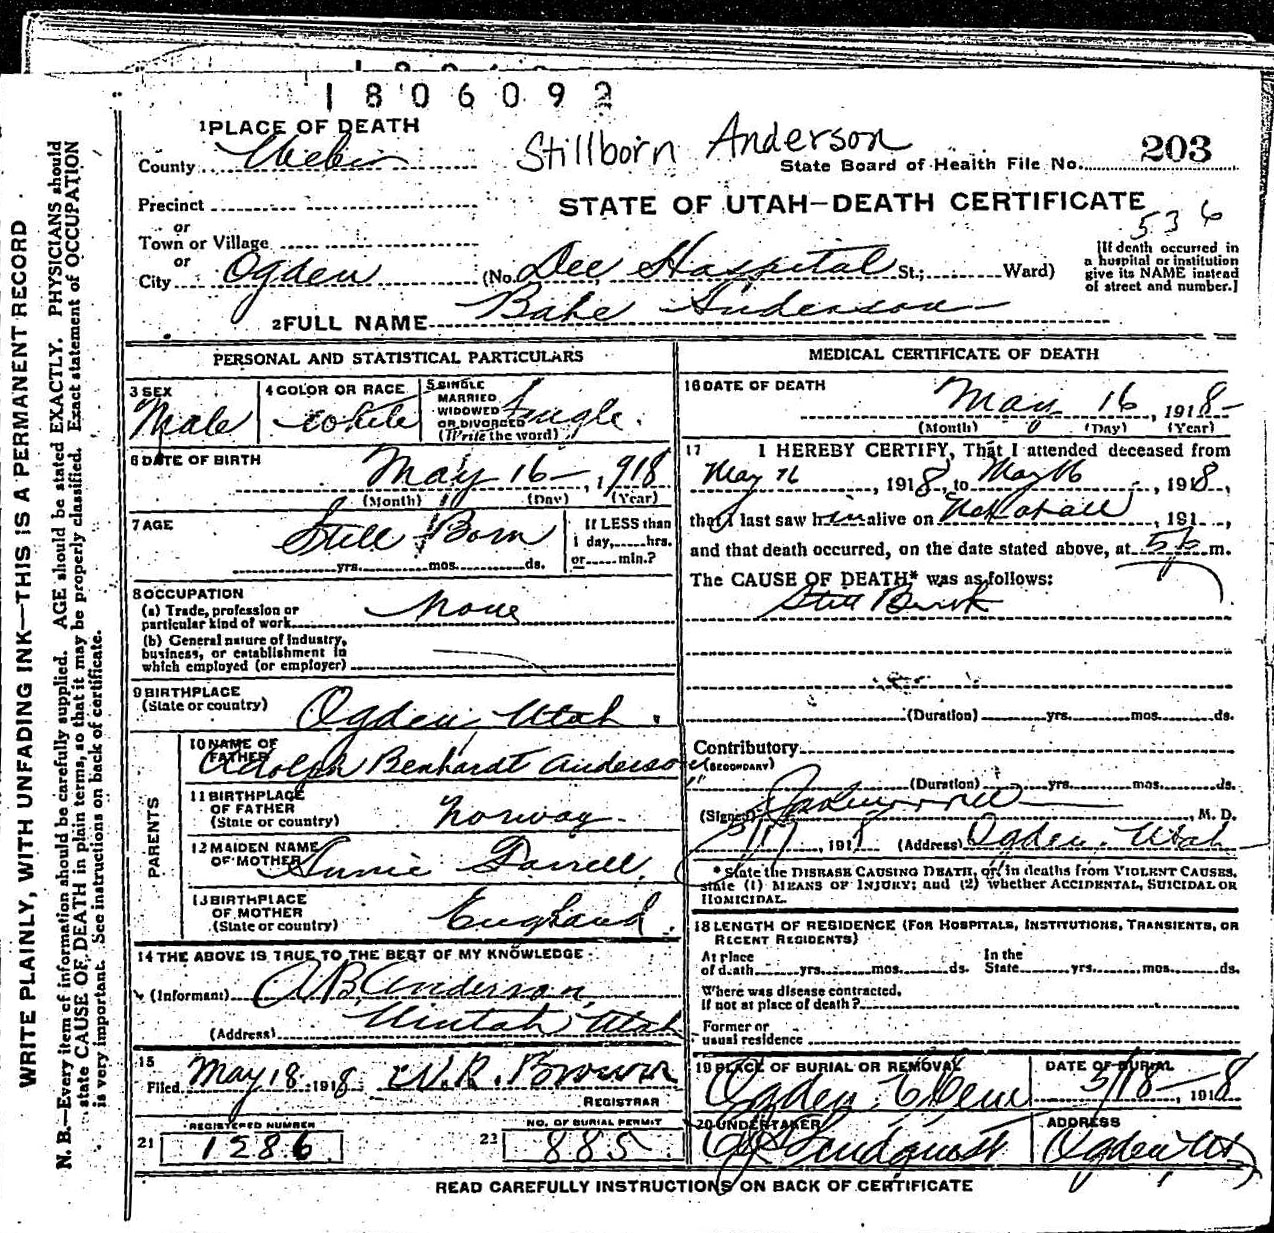 1806092
1 PLACE OF DEATH
Stillborn Anderson
County Weber
State Board of Health File No. 203
Precinct
STATE OF UTAH—DEATH CERTIFICATE
536
or
Town or Village
or
City Ogden (No. Dee Hospital St.; Ward)
[If death occurred in
a hospital or institution
give its NAME instead
of street and number.]
2 FULL NAME Babe Anderson
PERSONAL AND STATISTICAL PARTICULARS
3 SEX
Male
4 COLOR OR RACE
White
5 SINGLE
MARRIED
WIDOWED
OR DIVORCED
(Write the word)
Single.
6 DATE OF BIRTH
May 16, 1918
(Month) (Day) (Year)
7 AGE
Still Born
yrs. mos. ds.
If LESS than
1 day, hrs.
or min.?
8 OCCUPATION
(a) Trade, profession or
particular kind of work None
(b) General nature of industry,
business, or establishment in
which employed (or employer)
9 BIRTHPLACE
(State or country) Ogden, Utah.
PARENTS
10 NAME OF
FATHER
Adolph Benhardt Anderson
11 BIRTHPLACE
OF FATHER
(State or country) Norway.
12 MAIDEN NAME
OF MOTHER Annie Darrell,
13 BIRTHPLACE
OF MOTHER
(State or country) England.
14 THE ABOVE IS TRUE TO THE BEST OF MY KNOWLEDGE
(Informant) A B Anderson,
(Address) Uintah Utah
15
Filed May 18, 1918 W. R. Brown
REGISTRAR
21 REGISTERED NUMBER
1286
22 NO. OF BURIAL PERMIT
885
MEDICAL CERTIFICATE OF DEATH
16 DATE OF DEATH
May 16, 1918
(Month) (Day) (Year)
17 I HEREBY CERTIFY, That I attended deceased from
May 16, 1918, to May 16, 1918,
that I last saw him alive on Not at all, 191 ,
and that death occurred, on the date stated above, at m.
The CAUSE OF DEATH* was as follows:
Still Birth
(Duration) yrs. mos. ds.
Contributory
(SECONDARY)
(Duration) yrs. mos. ds.
(Signed) M. D.
5/17, 1918 (Address) Ogden, Utah
* State the DISEASE CAUSING DEATH, or, in deaths from VIOLENT CAUSES,
state (1) MEANS OF INJURY; and (2) whether ACCIDENTAL, SUICIDAL OR
HOMICIDAL.
18 LENGTH OF RESIDENCE (FOR HOSPITALS, INSTITUTIONS, TRANSIENTS, OR
RECENT RESIDENTS)
At place
of death yrs. mos. ds.
In the
State yrs. mos. ds.
Where was disease contracted,
If not at place of death?
Former or
usual residence
19 PLACE OF BURIAL OR REMOVAL
Ogden, Cem
DATE OF BURIAL
5/18, 1918
20 UNDERTAKER
Lindquist
ADDRESS
Ogden Ut
READ CAREFULLY INSTRUCTIONS ON BACK OF CERTIFICATE
WRITE PLAINLY, WITH UNFADING INK—THIS IS A PERMANENT RECORD
N. B.—Every item of information should be carefully supplied. AGE should be stated EXACTLY. PHYSICIANS should
state CAUSE OF DEATH in plain terms, so that it may be properly classified. Exact statement of OCCUPATION
is very important. See instructions on back of certificate.